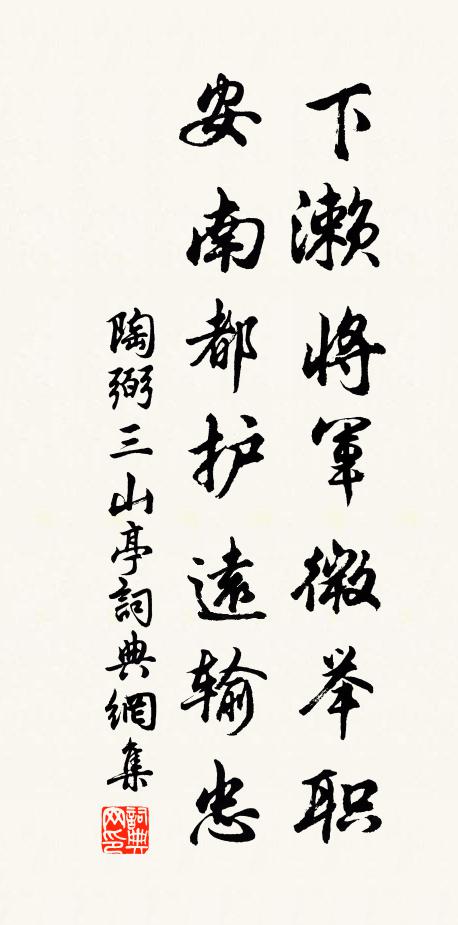 下濑将军微举职
安南都护远输忠
陶弼三山亭詞典網集
詞典网印